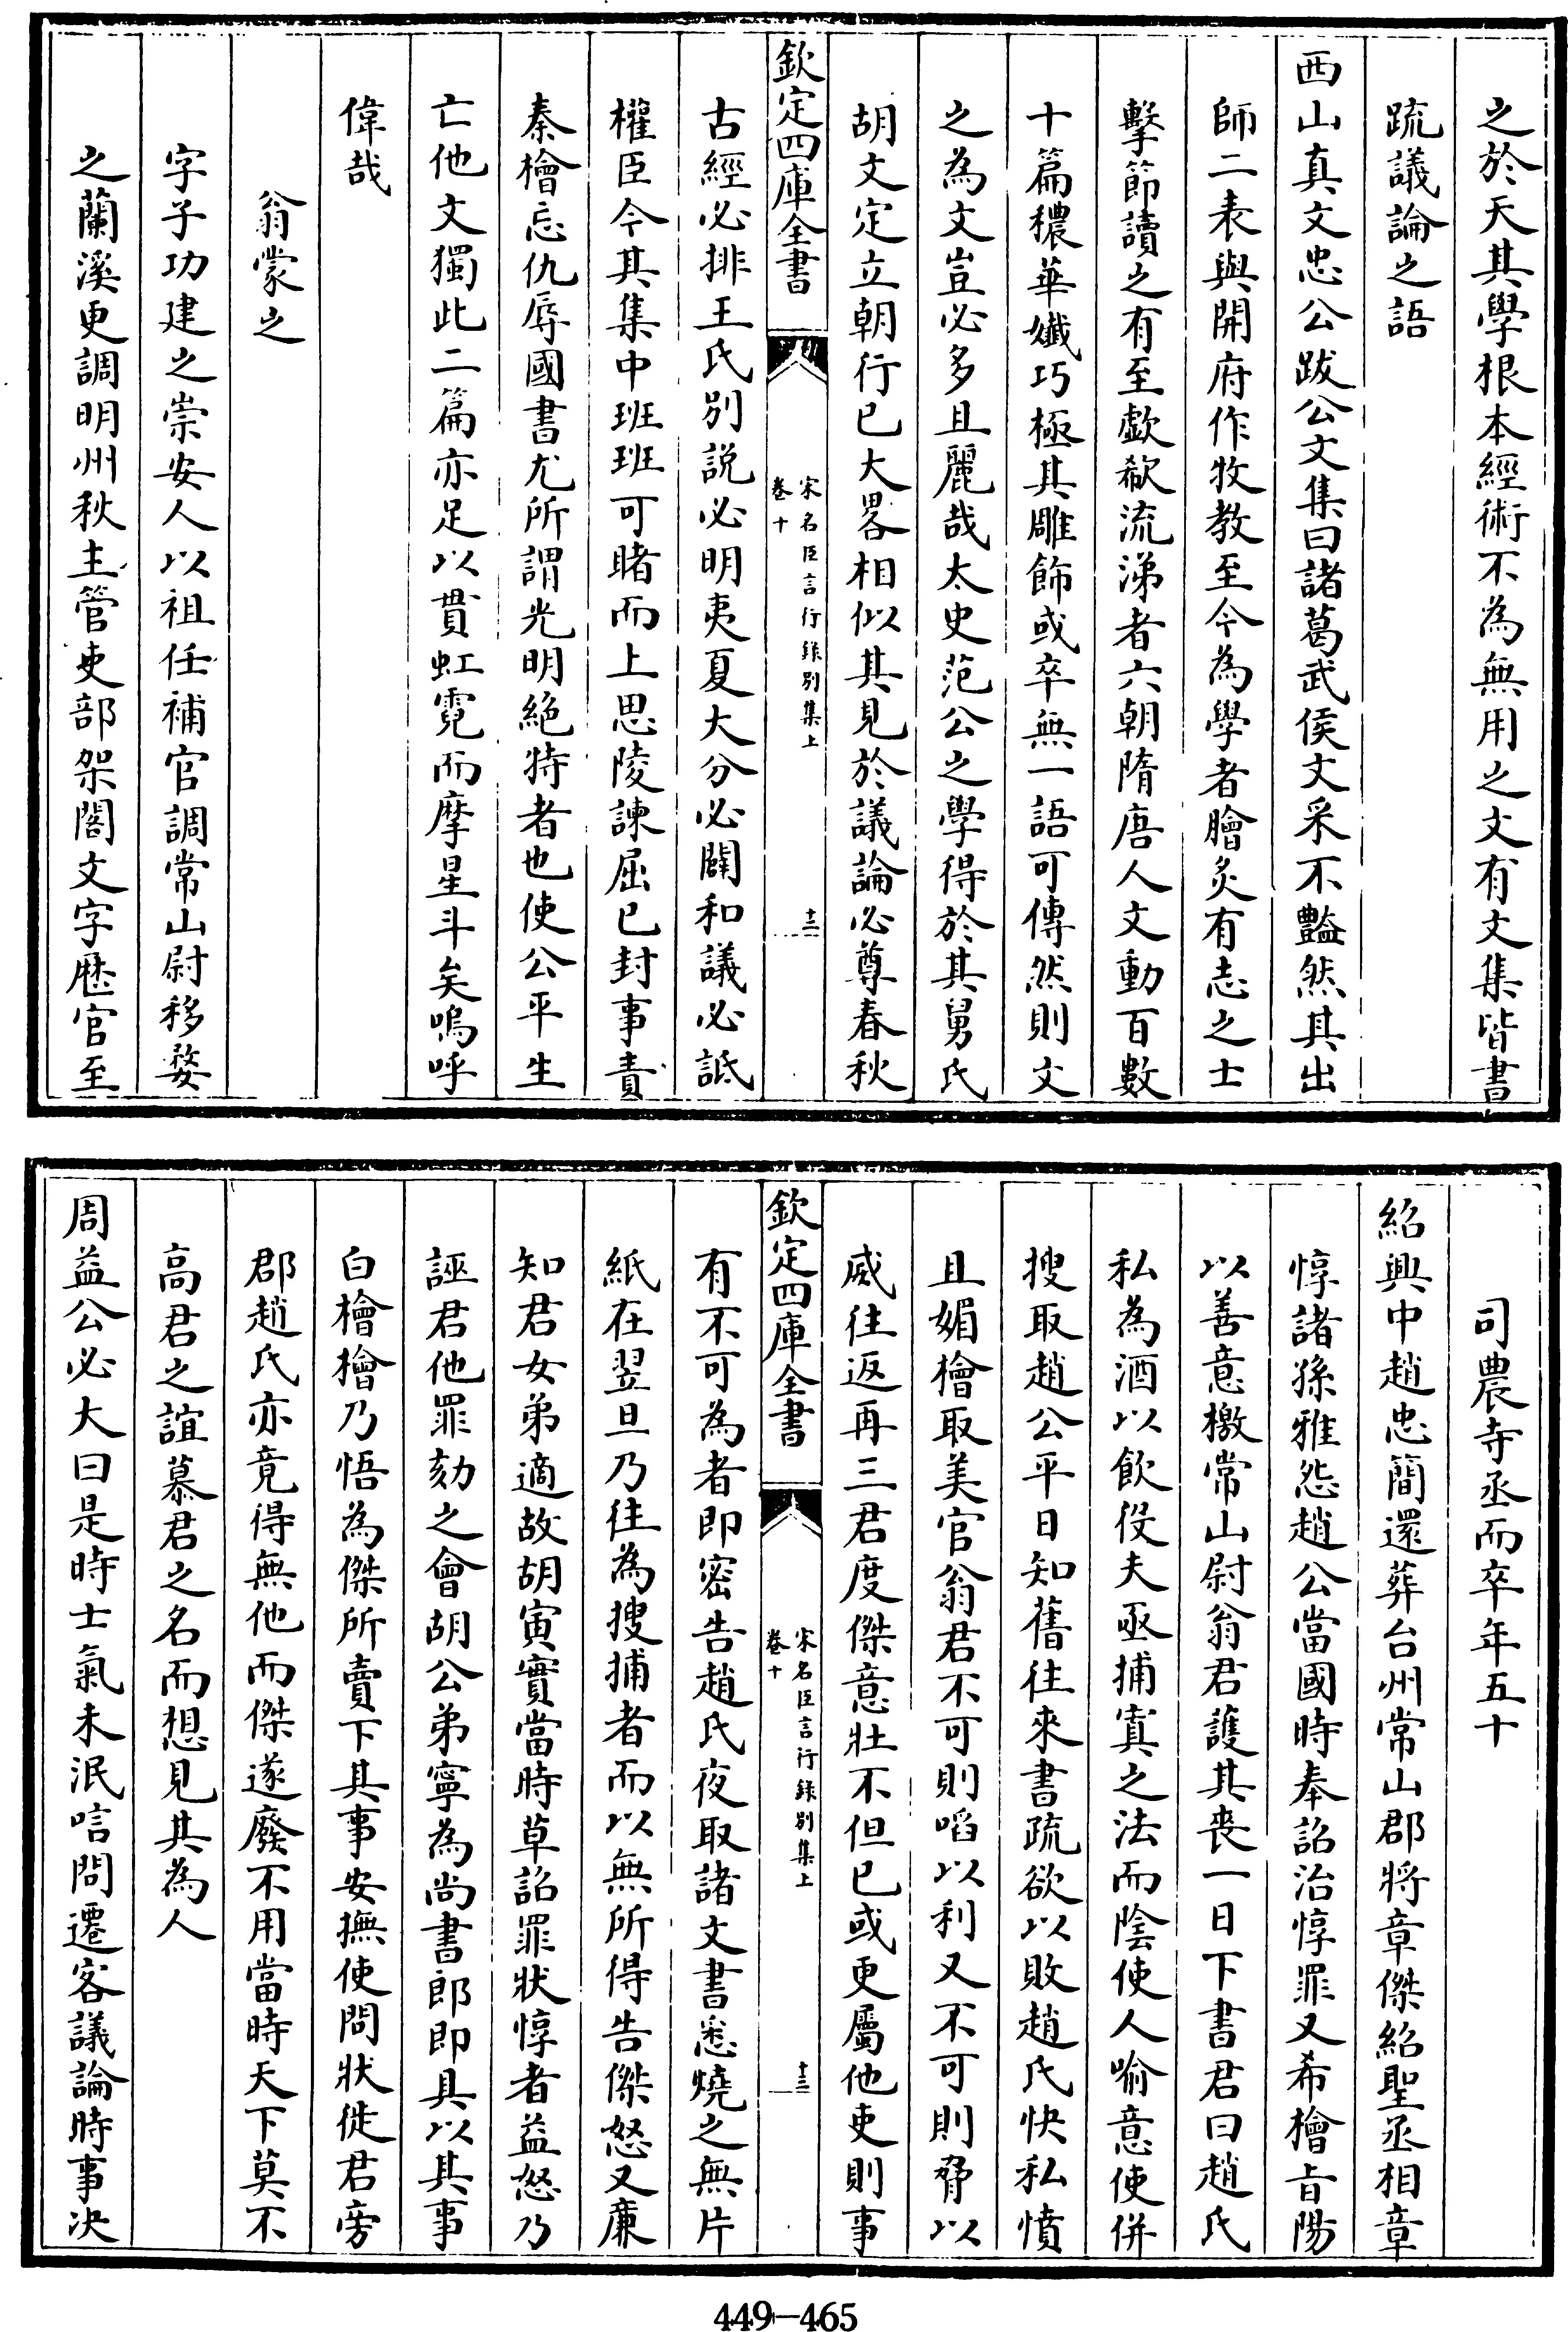 之於天其學根本經術不為無用之文有文集皆書
疏議論之語
西山真文忠公跋公文集曰諸葛武侯文采不豔然其出
師二表與開府作牧教至今為學者膾炙有志之士
擊節讀之有至歔欷流涕者六朝隋唐人文動百數
十篇穠華孅巧極其雕飾或卒無一語可傳然則文
之為文豈必多且麗哉太史范公之學得於其舅氏
胡文定立朝行已大畧相似其見於議論必尊春秋
欽定四庫全書
宋名臣言行錄別集上
卷十
十三
古經必排王氏別説必明夷夏大分必闢和議必詆
權臣今其集中班班可睹而上思陵諫屈已封事責
秦檜忘仇辱國書尤所謂光明絶特者也使公平生
亡他文獨此二篇亦足以貫虹霓而摩星斗矣嗚呼
偉哉
翁蒙之
字子功建之崇安人以祖任補官調常山尉移婺
之蘭溪更調明州秋主管吏部架閣文字歴官至
司農寺丞而卒年五十
紹興中趙忠簡還葬台州常山郡將章傑紹聖丞相章
惇諸孫雅怨趙公當國時奉詔治惇罪又希檜㫖陽
以善意檄常山尉翁君䕶其喪一日下書君曰趙氏
私為酒以飲役夫亟捕寘之法而陰使人喻意使併
搜取趙公平日知舊往來書疏欲以敗趙氏快私憤
且媚檜取美官翁君不可則啗以利又不可則脅以
威往返再三君度傑意壯不但已或更屬他吏則事
欽定四庫全書
宋名臣言行錄別集上
卷十
十三
有不可為者即密告趙氏夜取諸文書悉燒之無片
紙在翌旦乃往為搜捕者而以無所得告傑怒又廉
知君女弟適故胡寅實當時草詔罪狀惇者益怒乃
誣君他罪劾之會胡公弟寧為尚書郎即具以其事
白檜檜乃悟為傑所賣下其事安撫使問狀徙君旁
郡趙氏亦竟得無他而傑遂廢不用當時天下莫不
高君之誼慕君之名而想見其為人
周益公必大曰是時士氣未泯唁問遷客議論時事决
449-465